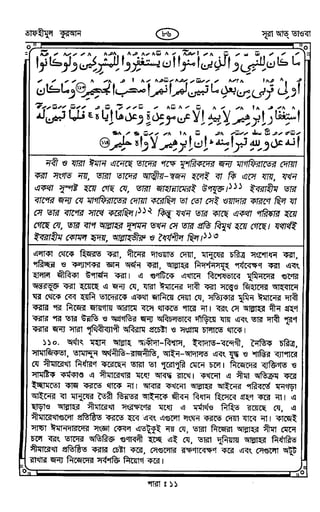 তাফহীমুল কুরআন
৮৬
সূরা আত্ তাওবা
مَا كَانَ لِلنَّبِىِّ وَالَّذِيْنَ اٰمَنُوْٓا اَنْ يَّسْتَغْفِرُوْا لِلْمُشْرِكِيْنَ وَلَوْ كَانُوْٓا
اُولِىْ قُرْبٰى مِنْۢ بَعْدِ مَا تَبَيَّنَ لَهُمْ اَنَّهُمْ اَصْحٰبُ الْجَحِيْمِ ۝ وَمَا كَانَ
اسْتِغْفَارُ اِبْرٰهِيْمَ لِاَبِيْهِ اِلَّا عَنْ مَّوْعِدَةٍ وَّعَدَهَآ اِيَّاهُ ۚ فَلَمَّا تَبَيَّنَ لَهٗٓ
اَنَّهٗ عَدُوٌّ لِّلّٰهِ تَبَرَّاَ مِنْهُ ۭ اِنَّ اِبْرٰهِيْمَ لَاَوَّاهٌ حَلِيْمٌ ۝
নবী ও যারা ঈমান এনেছে তাদের পক্ষে মুশরিকদের জন্য মাগফিরাতের দোয়া
করা সংগত নয়, তারা তাদের আত্মীয়-স্বজন হলেই বা কি এসে যায়, যখন
একথা সুস্পষ্ট হয়ে গেছে যে, তারা জাহান্নামেরই উপযুক্ত।১১১ ইবরাহীম তার
বাপের জন্য যে মাগফিরাতের দোয়া করেছিল তা তো সেই ওয়াদার কারণে ছিল যা
সে তার বাপের সাথে করেছিল।১১২ কিন্তু যখন তার কাছে একথা পরিষ্কার হয়ে
গেছে যে, তার বাপ আল্লাহর দুশমন তখন সে তার প্রতি বিমুখ হয়ে গেছে। যথার্থই
ইবরাহীম কোমল হৃদয়, আল্লাহভীরু ও ধৈর্যশীল ছিল।১১৩
এলাকা থেকে হিজরত করা, দীনের দাওয়াত দেয়া, মানুষের চরিত্র সংশোধন করা,
পরিচ্ছন্ন ও কল্যাণকর জ্ঞান অর্জন করা, আল্লাহর নিদর্শনসমূহ পর্যবেক্ষণ করা এবং
হালাল জীবিকা উপার্জন করা। এ গুণটিকে এখানে বিশেষভাবে মুমিনদের গুণের
অন্তরভুক্ত করা হয়েছে এ জন্য যে, যারা ঈমানের দাবী করা সত্ত্বেও জিহাদের আহবানে
ঘর থেকে বের হয়নি তাদেরকে একথা জানিয়ে দেয়া যে, সত্যিকার মুমিন ঈমানের দাবী
করার পর নিজের জায়গায় আরামে বসে থাকতে পারে না। বরং সে আল্লাহর দীন গ্রহণ
করার পর তার উন্নতি ও অগ্রগতির জন্য অবিচলভাবে দাঁড়িয়ে যায় এবং তার দাবী পূরণ
করার জন্য সারা পৃথিবীব্যাপী অবিরাম প্রচেষ্টা ও সংগ্রাম চালাতে থাকে।
১১০. অর্থাৎ মহান আল্লাহ আকীদা-বিশ্বাস, ইবাদাত-বন্দেগী, নৈতিক চরিত্র,
সামাজিকতা, তামাদ্দুন অর্থনীতি-রাজনীতি, আইন-আদালত এবং যুদ্ধ ও শান্তির ব্যাপারে
যে সীমারেখা নির্ধারণ করেছেন তারা তা পুরোপুরি মেনে চলে। নিজেদের ব্যক্তিগত ও
সামষ্টিক কর্মকাণ্ড এ সীমারেখার মধ্যে আবদ্ধ রাখে। কখনো এ সীমা অতিক্রম করে
ইচ্ছামতো কাজ করতে থাকে না। আবার কখনো আল্লাহর আইনের পরিবর্তে মনগড়া
আইনের বা মানুষের তৈরী ভিন্নতর আইনকে জীবন বিধান হিসেবে গ্রহণ করে না। এ
ছাড়াও আল্লাহর সীমারেখা সংরক্ষণের মধ্যে এ মর্মার্থও নিহিত রয়েছে যে, এ
সীমারেখাগুলো প্রতিষ্ঠিত করতে হবে এবং এগুলো লংঘন করতে দেয়া যাবে না। কাজেই
সাচ্চা ঈমানদারদের সংজ্ঞা কেবল এতটুকুই নয় যে, তারা নিজেরা আল্লাহর সীমা মেনে
চলে বরং তাদের অতিরিক্ত গুণাবলী হচ্ছে এই যে, তারা দুনিয়ায় আল্লাহর নির্ধারিত
সীমারেখা প্রতিষ্ঠিত করার চেষ্টা করে, সেগুলোর রক্ষণাবেক্ষণ করে এবং সেগুলো অটুট
রাখার জন্য নিজেদের সর্বশক্তি নিয়োগ করে।
পারা : ১১